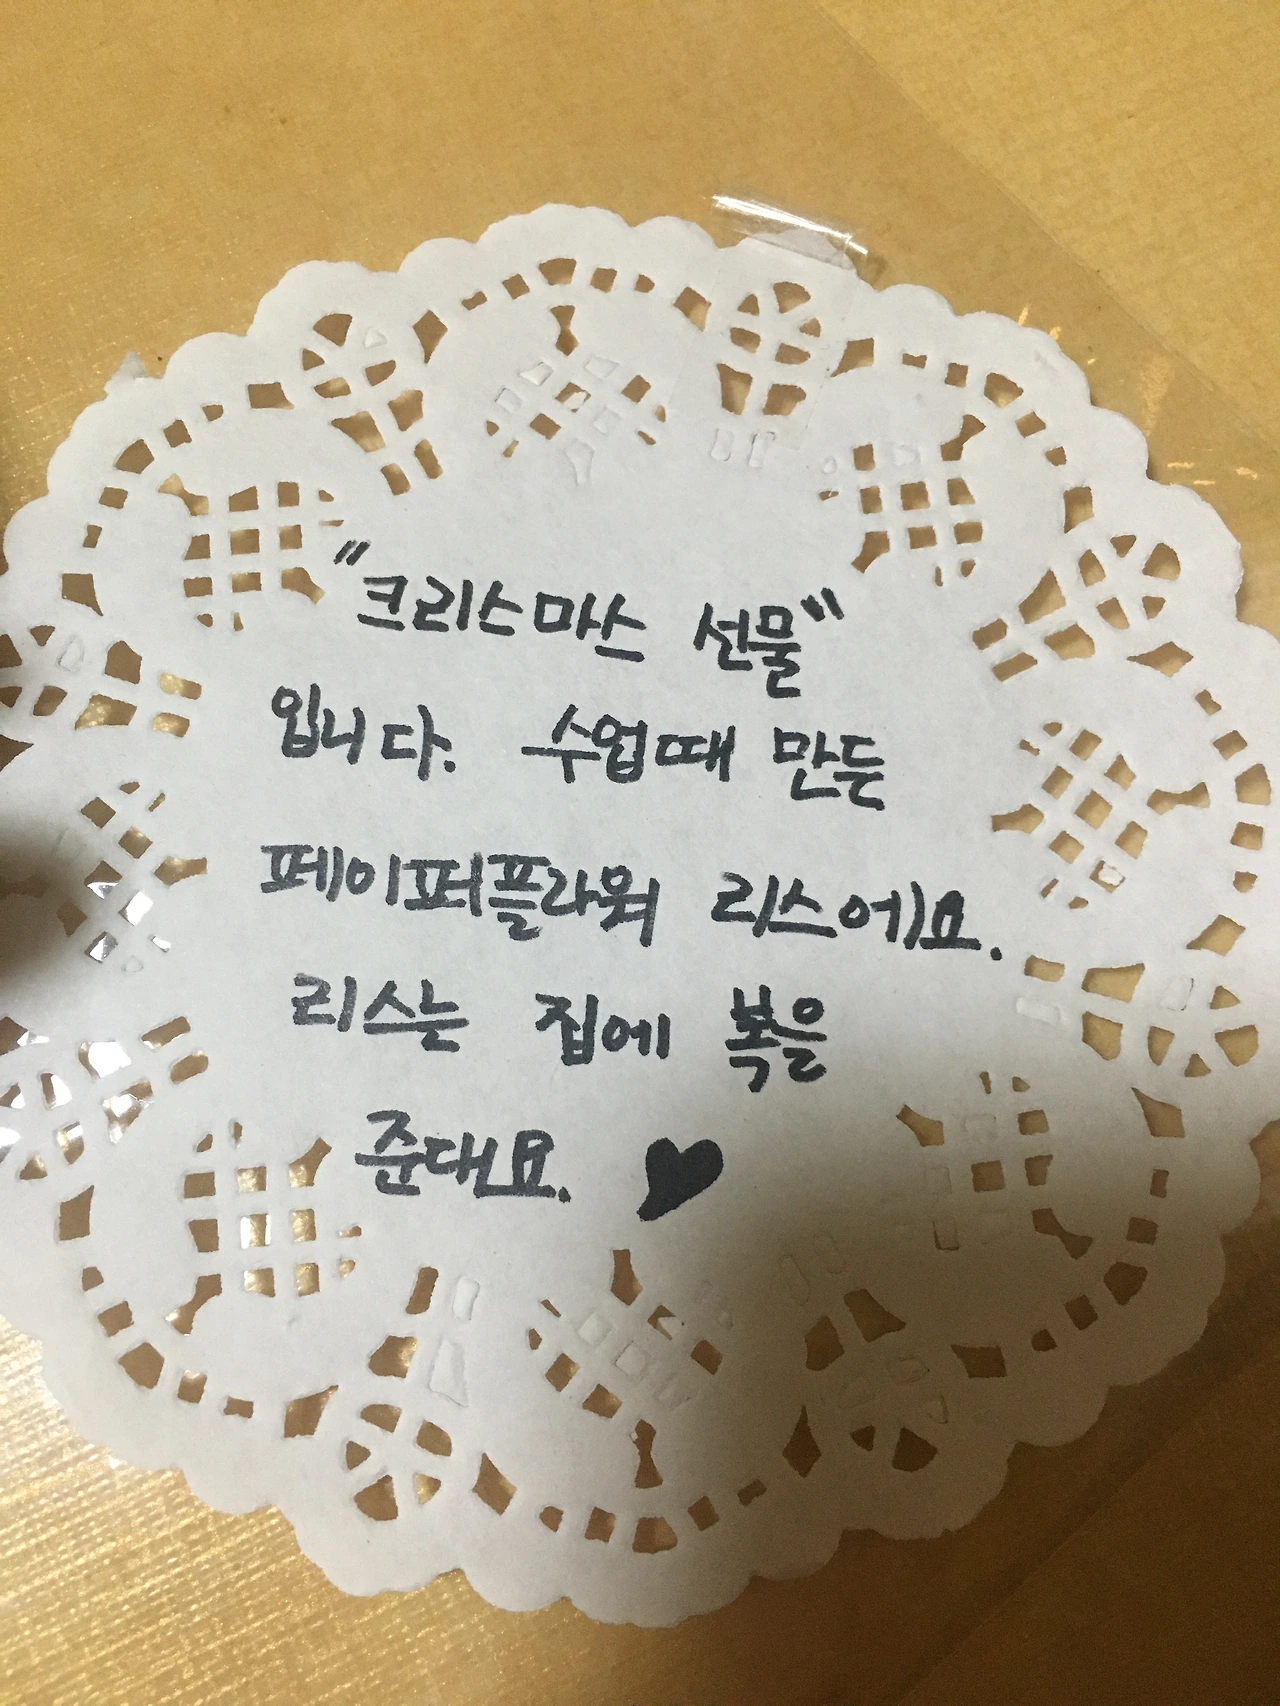 "크리스마스 선물"
입니다. 수업때 만든
페이퍼플라워 리스에요.
리스는 집에 복을
준대요. ♥